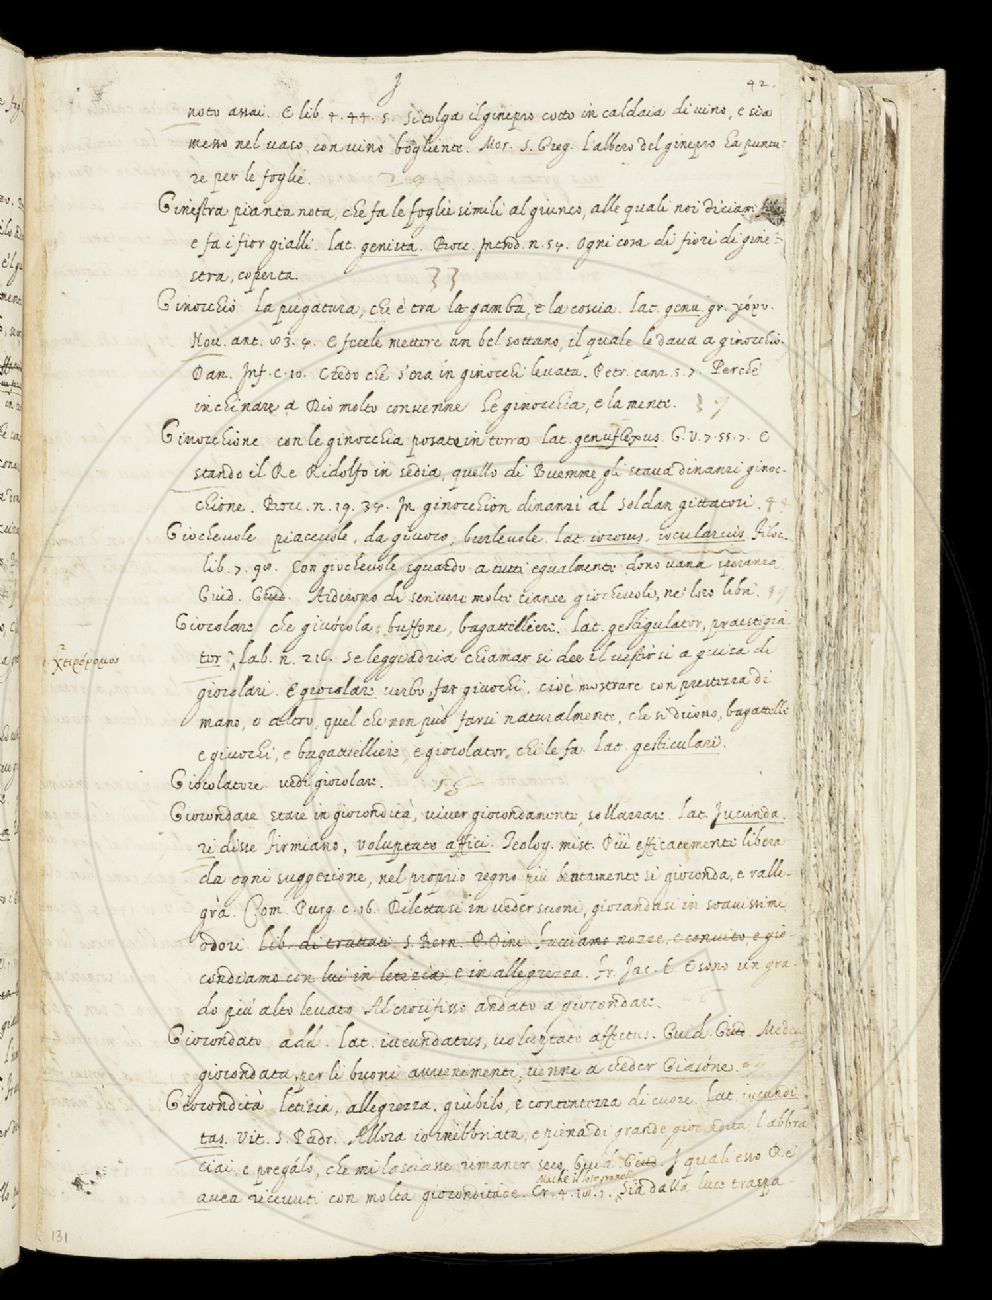 42.
noto assai. E lib. 4. 44. 5. Si tolga il ginepro cotto in caldaia di vino, e sia
messo nel vaso, con vino bogliente. Mor. S. Greg. l'albero del ginepro ha puntu-
re per le foglie.
Ginestra pianta nota, che fa le foglie simili al giunco, alle quali noi diciam
e fa i fior gialli. Lat. genista. Bocc. Introd. n. 54. Ogni cosa di fiori di gine-
stra, coperta.
Ginocchio la piegatura, che è tra la gamba, e la coscia. Lat. genu. gr. γόνυ.
Nov. ant. 83. 4. E fecele mettere un bel sottano, il quale le dava a ginocchio.
Dan. Inf. c. 10. Credo che s'era in ginocchi levata. Petr. canz. 5. 7. Perchè
inchinare a Dio molto convenne Le ginocchia, e la mente. 37
Ginocchione con le ginocchia posate in terra Lat. genuflexus. G. V. 7. 55. 7. E
stando il Re Ridolfo in sedia, quello di Buemme gli stava dinanzi ginoc-
chione. Bocc. n. 19. 34. In ginocchion dinanzi al Soldan gittatosi.
Giochevole piacevole, da giuoco, burlevole. Lat. iocosus, iocularius. Filoc.
lib. 7. 98. Con giochevole sguardo a tutti egualmente dono vana speranza
Guid. Giud. Ardirono di scrivere molte ciance giochevoli, ne' loro libri.
Giocolare che giuócola, buffone, bagattelliere. Lat. gestigulator, praestigia
tor. Lab. n. 216. Se leggiadria chiamar si dee il vestirsi a guisa di
χειρόμορος
giocolari. E giocolare verbo, far giuochi, cioè mostrare con prestezza di
mano, o altro, quel che non può farsi naturalmente, che si dicono, bagattelle
e giuochi, e bagattelliere, e giocolator, chi le fa Lat. gesticulari.
Giocolatore vedi giocolare.
Giocondare stare in giocondità, viver giocondamente, sollazzare. Lat. Jucunda
ri disse Firmiano, voluptate affici. Teolog. mist. Più efficacemente libera
da ogni suggezione, nel proprio regno più beatamente si gioconda, e ralle-
gra. Com. Purg. c. 16. Dilettasi in veder scene, giocandosi in soavissimi
odori Lib. di trattati S. Bern. D Oine Facciamo nozze, e convito e gio
condiamo con lui in letizia e in allegrezza. Fr. Jac. T. E sono un gra-
do più alto levato Al crocifisso andato a giocondare.
Giocondato add. Lat. iucundatus, voluptate affectus. Guid. Giud. Medea
giocondata, per li buoni avvenimenti, venne a veder Giasóne.
Giocondità letizia, allegrezza, giubilo, e contentezza di cuore. Lat. iucundi
tas. Vit. S. Padr. Allora io inebbriata, e piena di grande giocondità l'abbra
ciai, e pregálo, che mi lasciasse rimaner seco. Guid. Giud. I quali esso Re
avea ricevuti con molta gioconditade. Cr. 4. 18. 1. Sia dalla luce traspa-
131